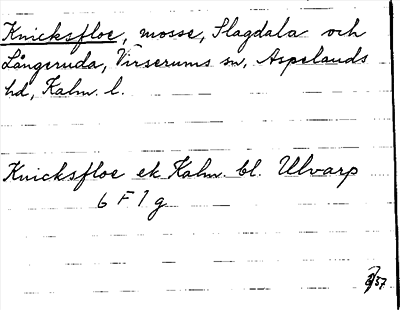 Knicksfloe, mosse, Slagdala och
Långeruda, Virserums sn, Aspelands
hd, Kalm. l.
Knicksfloe ek Kalm. bl. Ulvarp
6 F 1 g